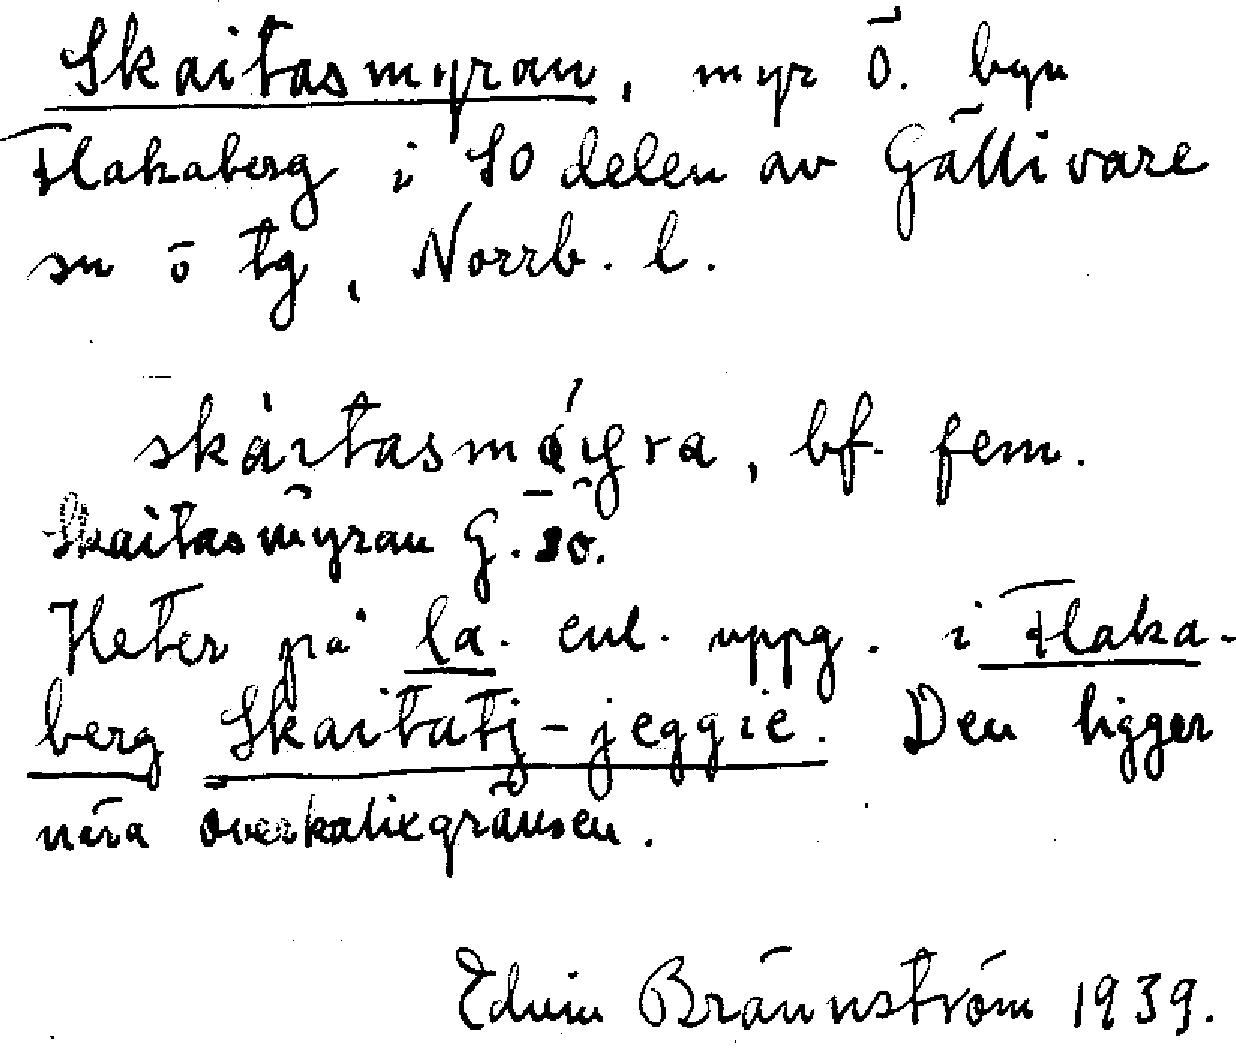 Skaitasmyran, myr ö. byn
Flakaberg i SO delen av Gällivare
sn o tg, Norrb. l.
bf. fem.
Skaitasmyran G. sö.
Heter på la. enl. uppg. i Flaka-
berg Skaitatj-jeggie. Den ligger
nära överkalixgränsen.
Edvin Brännström 1939.